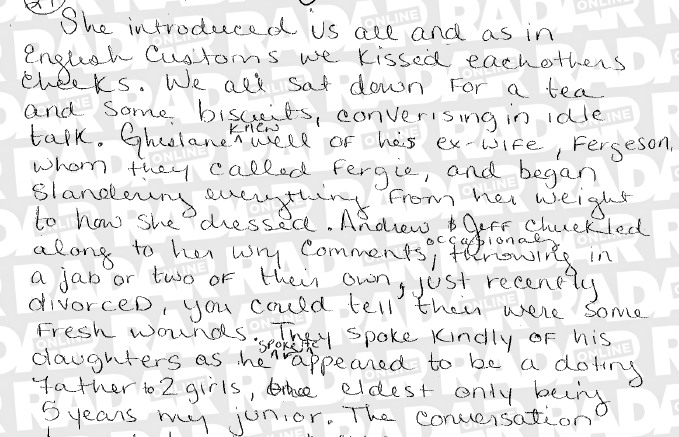 She introduced us all and as in
English Customs we Kissed eachothers
cheeks. We all sat down For a tea
and some biscuits, converising in idle
talk. Ghislane knew well of his ex-wife, Fergeson,
whom they called Fergie, and began
Slandering everything From her weight
to how she dressed. Andrew & Jeff chuckled
along to her wry comments, occasionaly throwing in
a jab or two of their own, just recently
divorced, you could tell their were some
Fresh wounds. They spoke kindly of his
daughters as he appeared to be a doting
father to 2 girls, eldest only being
5 years my junior. The conversation
RADAR ONLINE